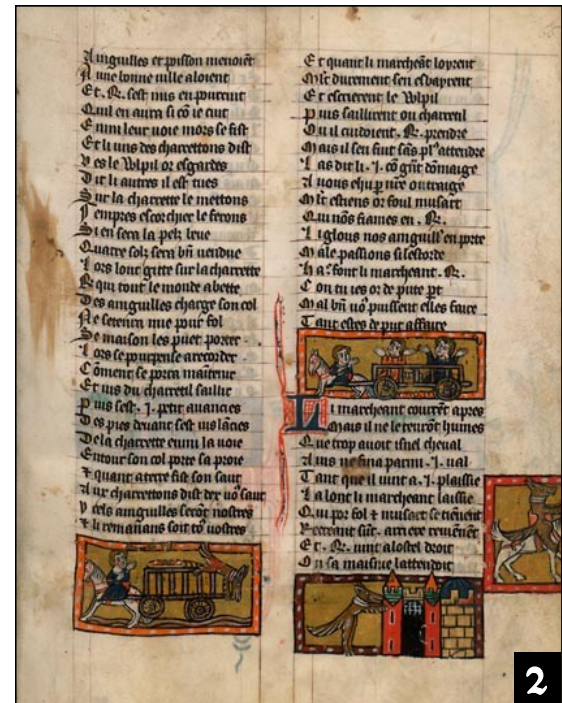 Anguilles et poisson menoiēt
A une bonne uille aloient
Et . R . sest mis en pourtrut
Quil en aura si cō ie cuit
Emmi leur uoie mors se fist
Et li uns des charretons dist
Ves le Wlpil or esgardes
Dit li autres il est tues
Sur la charrette le mettons
Tempres escorcher le ferons
Si en sera la pelz leue
Quatre solz sera bn̄ uendue
Lors lont gitte sur la charrette
R qui tout le monde abette
Des anguilles charge son col
Ne se tenra mie pour fol
Se maison les puet porter
Lors se pourpense
Cōment se porra maītenir
Et ius du charretil saillit
Puis sest . I . petit auancies
Des pies deuant sest ius lācies
De la charrette enmi la uoie
Entour son col porte sa proie
⁊ quant a terre fist son saut
Aux charretons dist dex uo saut
cels anguilles serōt nostres
⁊ li remanans soit to uostres
Et quant li marcheāt loyrent
Mlt durement sen esbayrent
Et escrierent le Wlpil
Puis saillirent ou charretil
Ou il cuidoient . R . prendre
Mais il sen fuit sās pl attendre
Las dit li . I . cō grāt dōmaige
A uons
Mlt estiens or foul musart
Qui nos fiames en . R .
Li glous nos anguill en porte
Male passions
Ha font li marcheant . R .
Con tu ies or de pute pt
Mal bn̄ uo puissent elles faire
Tant estes de put affaire
Li marcheant courrēt apres
Mais il ne le tenrōt humes
Que trop auoit isnel cheual
Ains ne fina parmi . I . ual
Tant que il uint a . I . plaissie
La lont li marcheant laissie
Qui por fol ⁊ musart se tiēnent
Recreant sūt . arriere reuiēnēt
Et . R . uint a lostel droit
Ou sa maisnie lattendoit
2